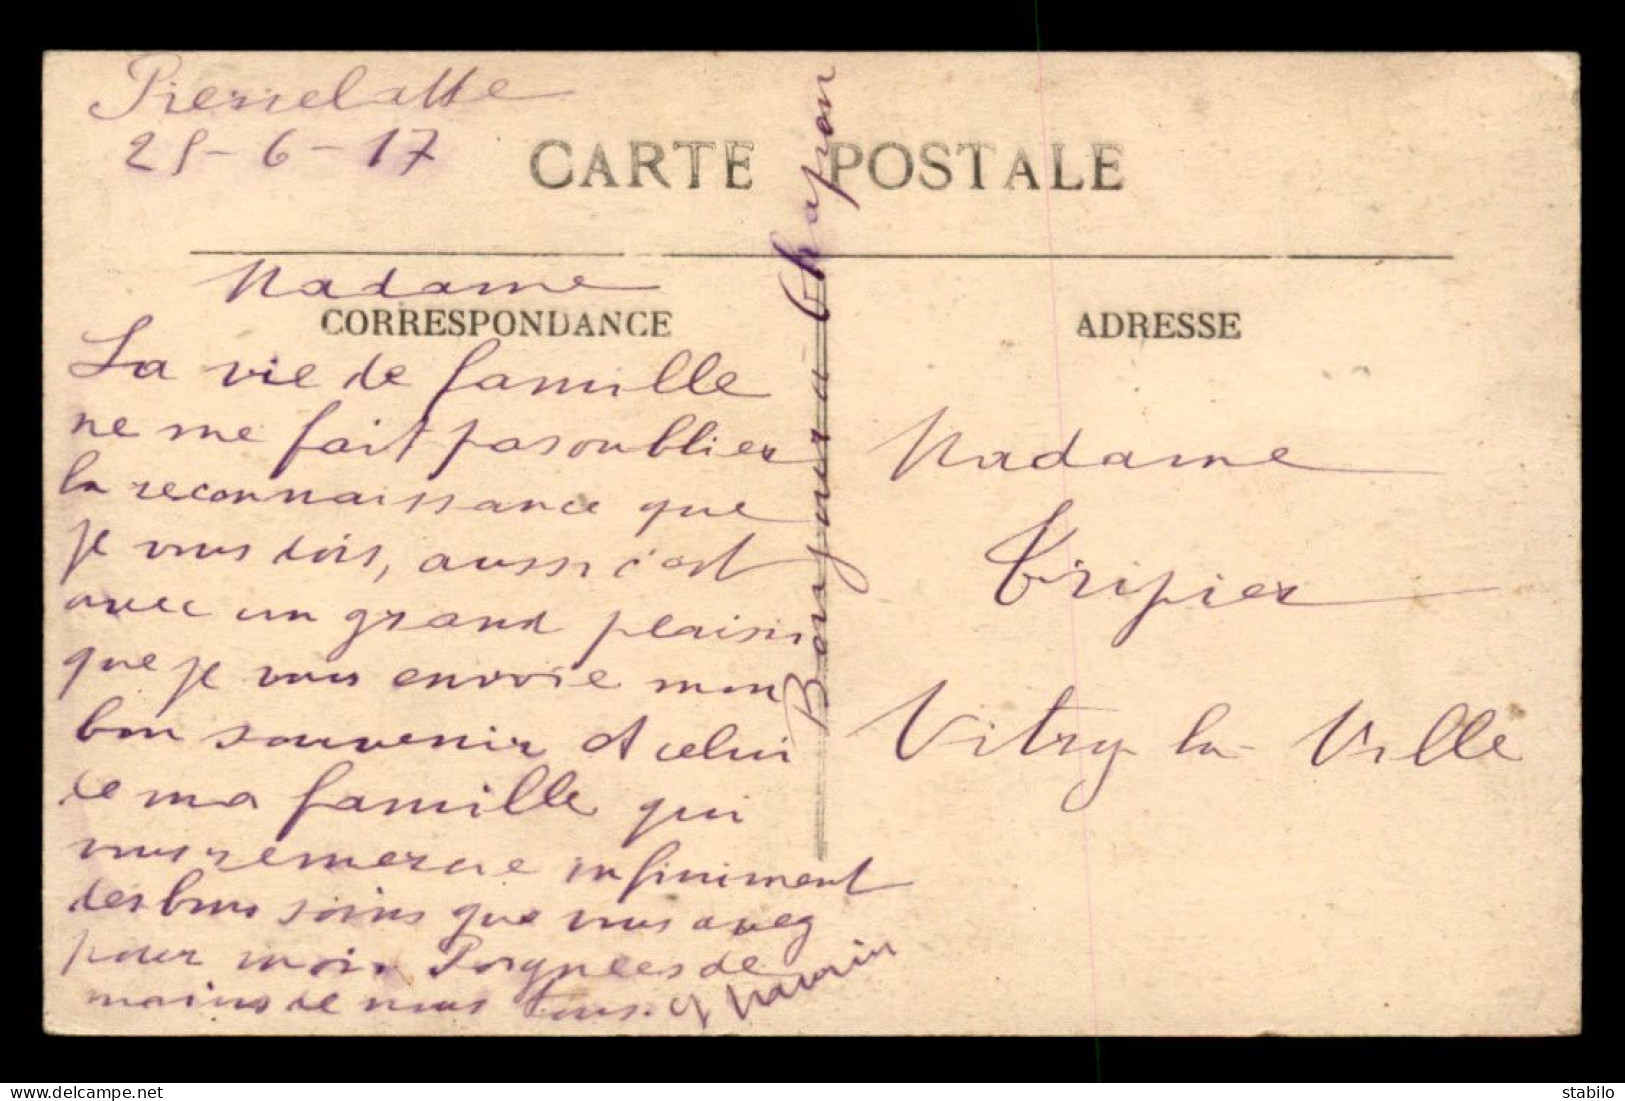 Pierrelatte
25-6-17
CARTE POSTALE
Madame
CORRESPONDANCE
La vie de famille
ne me fait pas oublier
la reconnaissance que
je vous dois, aussi c'est
avec un grand plaisir
que je vous envoie mon
bon souvenir et celui
de ma famille qui
vous remercie infiniment
des bons soins que vous avez
pour moi. Poignées de
mains de nous tous.
Bonjour à Chapron
ADRESSE
Madame
Tripier
Vitry la Ville
delcampe.net
stabilo